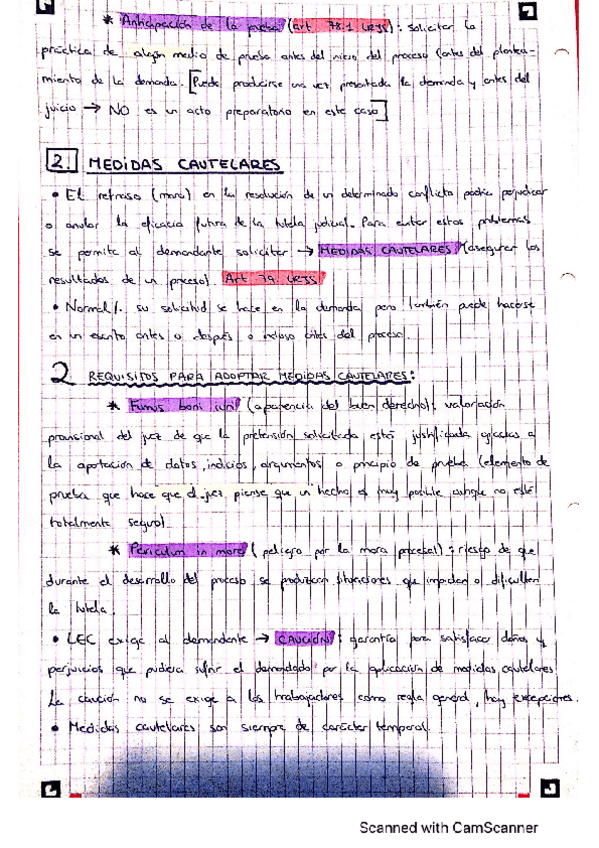 * Anticipación de la prueba (art. 78.1 LRJS): solicitar la
práctica de algún medio de prueba antes del inicio del proceso (antes del plantea-
miento de la demanda. [Puede producirse una vez presentada la demanda y antes del
juicio → NO es un acto preparatorio en este caso]
2. MEDIDAS CAUTELARES
• El retraso (mora) en la resolución de un determinado conflicto podría perjudicar
o anular la eficacia futura de la tutela judicial. Para evitar estos problemas
se permite al demandante solicitar → MEDIDAS CAUTELARES (asegurar los
resultados de un proceso). Art 79. LRJSS
• Normal/. su solicitud se hace en la demanda pero también puede hacerse
en un escrito antes o después o incluso antes del proceso.
2 REQUISITOS PARA ADOPTAR MEDIDAS CAUTELARES:
* Fumus boni iuris (apariencia del buen derecho): valoración
provisional del juez de que la pretensión solicitada está justificada gracias a
la aportación de datos, indicios, argumentos o principio de prueba (elemento de
prueba que hace que el juez piense que un hecho es muy posible aunque no esté
totalmente seguro)
* Periculum in mora (peligro por la mora procesal): riesgo de que
durante el desarrollo del proceso se produzcan situaciones que impidan o dificulten
la tutela.
• LEC exige al demandante → CAUCIÓN: garantía para satisfacer daños y
perjuicios que pudiera sufrir el demandado por la aplicación de medidas cautelares.
La caución no se exige a los trabajadores como regla general, hay excepciones.
• Medidas cautelares son siempre de carácter temporal.
Scanned with CamScanner